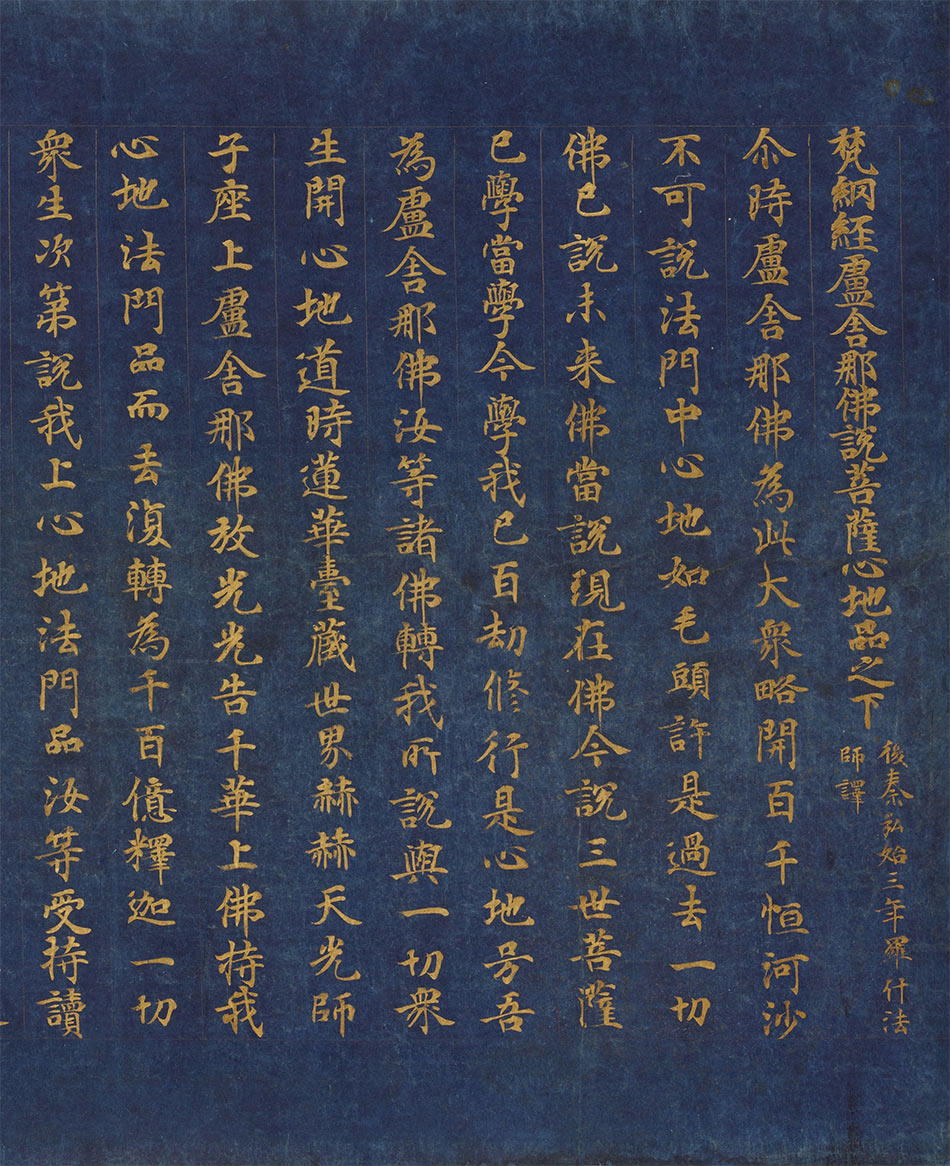 梵網経盧舎那佛說菩薩心地品之下
後秦弘始三年羅什法
師譯
尒時盧舎那佛為此大衆略開百千恒河沙
不可說法門中心地如毛頭許是過去一切
佛已說未来佛當說現在佛今說三世菩薩
已學當學今學我已百劫修行是心地号吾
為盧舎那佛汝等諸佛轉我所說與一切衆
生開心地道時蓮華臺藏世界赫赫天光師
子座上盧舎那佛放光光告千華上佛持我
心地法門品而去復轉為千百億釋迦一切
衆生次第說我上心地法門品汝等受持讀